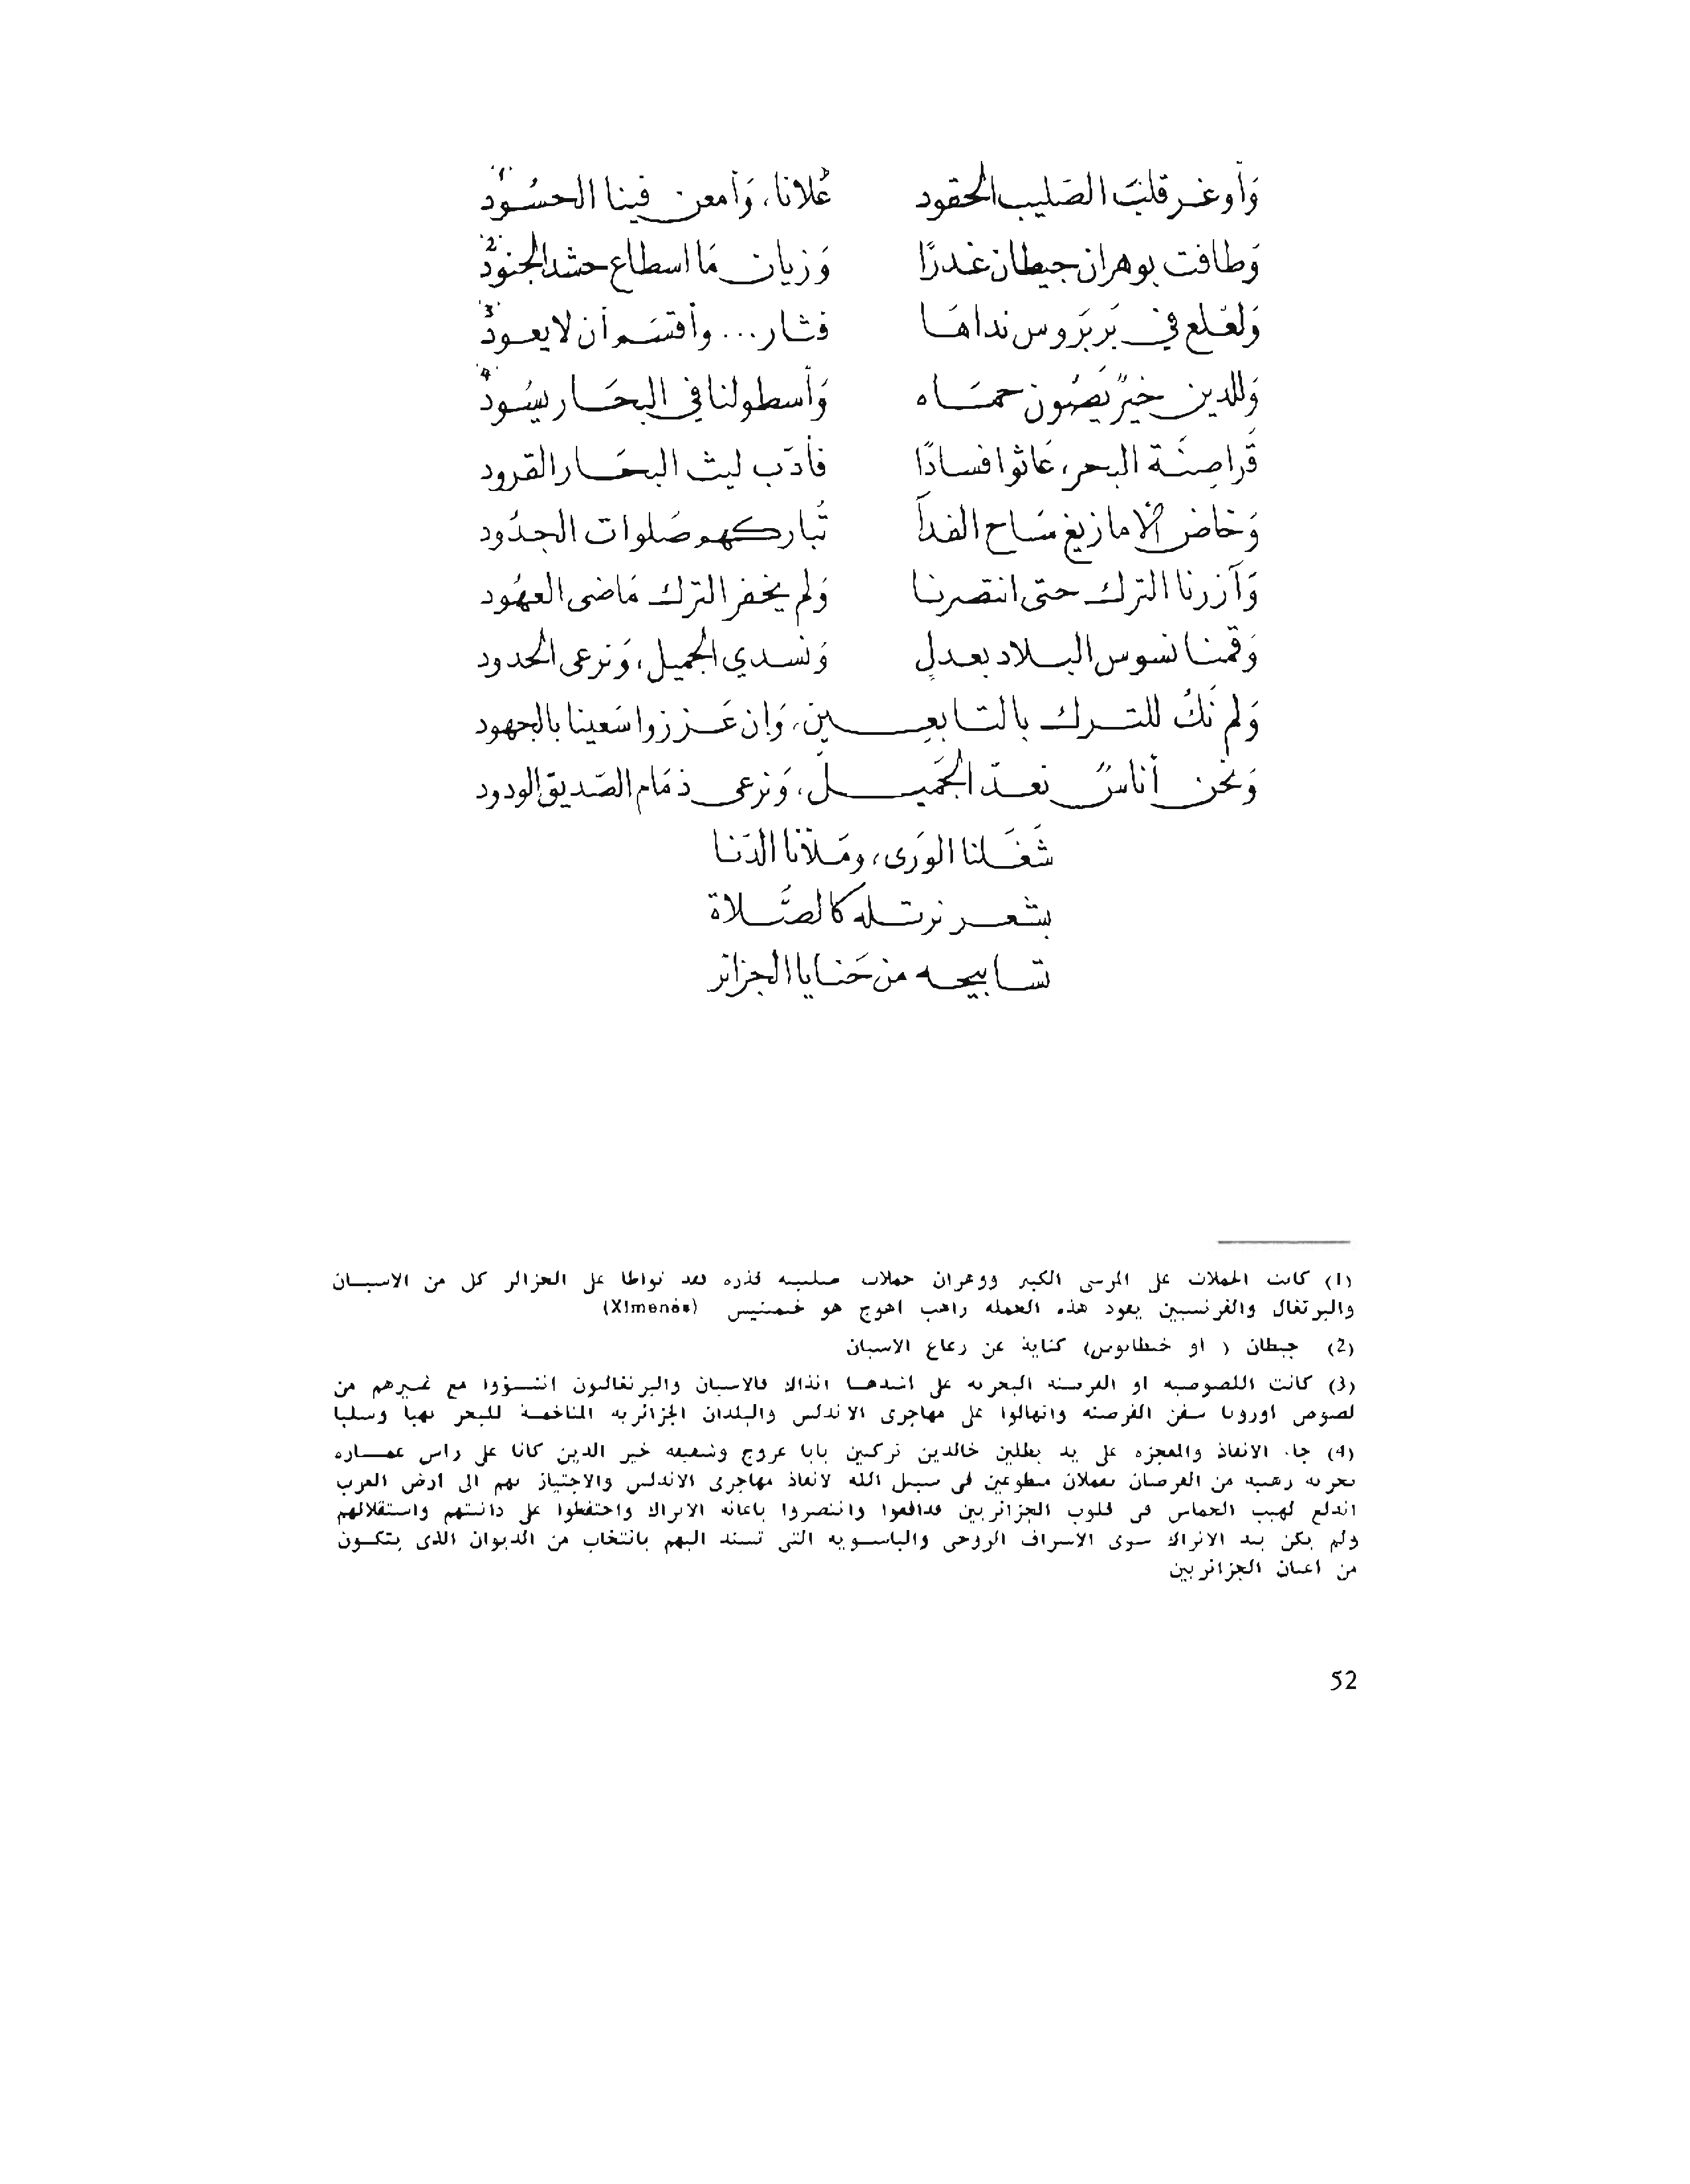 وَأوغر قلبَ الصَليب الحقود عُلانا، وَأمعن فينا الحسُود (1)
وَطافت بوهران جيطان غدرًا وَزيان مَا اسطاع حشد الجنود (2)
وَلعْلع في بَربَروس نداهَا فثار... وأقسَم أن لا يعود (3)
وَللدين خيرٌ يَصُون حمَاه وَأسطولنا في البحَار يسُود (4)
قَراصِنَة البحر، عَاثوا فسادًا فأدّب ليث البحَار القرود
وَخاض الأمازيغ سَاح الفدآ تُباركهم صَلوات الجدُود
وَآزرنا الترك حتى انتصرنا وَلم يخفر الترك مَاضى العهُود
وَقمنا نسوس البلاد بعدلٍ وَنسدي الجميل، وَنرعى الحدود
وَلم نَكُ للترك بالتابعِين، وَإن عَززوا سَعينا بالجهود
وَنحن أناسٌ نعدّ الجَميلَ، وَنرعى ذمَام الصَديق الودود
شَغَلنا الورَى، ومَلأنا الدّنا
بشعر نرتله كالصَّلاة
تسابيحه من حَنايا الجزائر
(1) كانت الحملات على المرسى الكبير ووهران حملات صليبيه قذره فقد تواطا على الجزائر كل من الاسبان
والبرتغال والفرنسيين يقود هذه الحمله راهب اهوج هو خيمنيس (Ximenès)
(2) جيطان ( او خيطانوس) كناية عن رعاع الاسبان
(3) كانت اللصوصيه او القرصنه البحريه على اشدها انذاك فالاسبان والبرتغاليون انتشؤوا مع غيرهم من
لصوص اوروبا سفن القرصنه وانهالوا على مهاجرى الاندلس والبلدان الجزائريه المتاخمة للبحر نهبا وسلبا
(4) جاء الانقاذ والمعجزه على يد بطلين خالدين تركيين بابا عروج وشقيقه خير الدين كانا على راس عماره
بحريه رهيبه من القرصان يعملان متطوعين فى سبيل الله لانقاذ مهاجرى الاندلس والاجتياز بهم الى ارض العرب
اندلع لهيب الحماس فى قلوب الجزائريين فدافعوا وانتصروا باعانه الاتراك واحتفظوا على ذاتيتهم واستقلالهم
ولم يكن بيد الاتراك سوى الاشراف الروحى والباسويه التى تسند اليهم بانتخاب من الديوان الذى يتكون
من اعيان الجزائريين
52